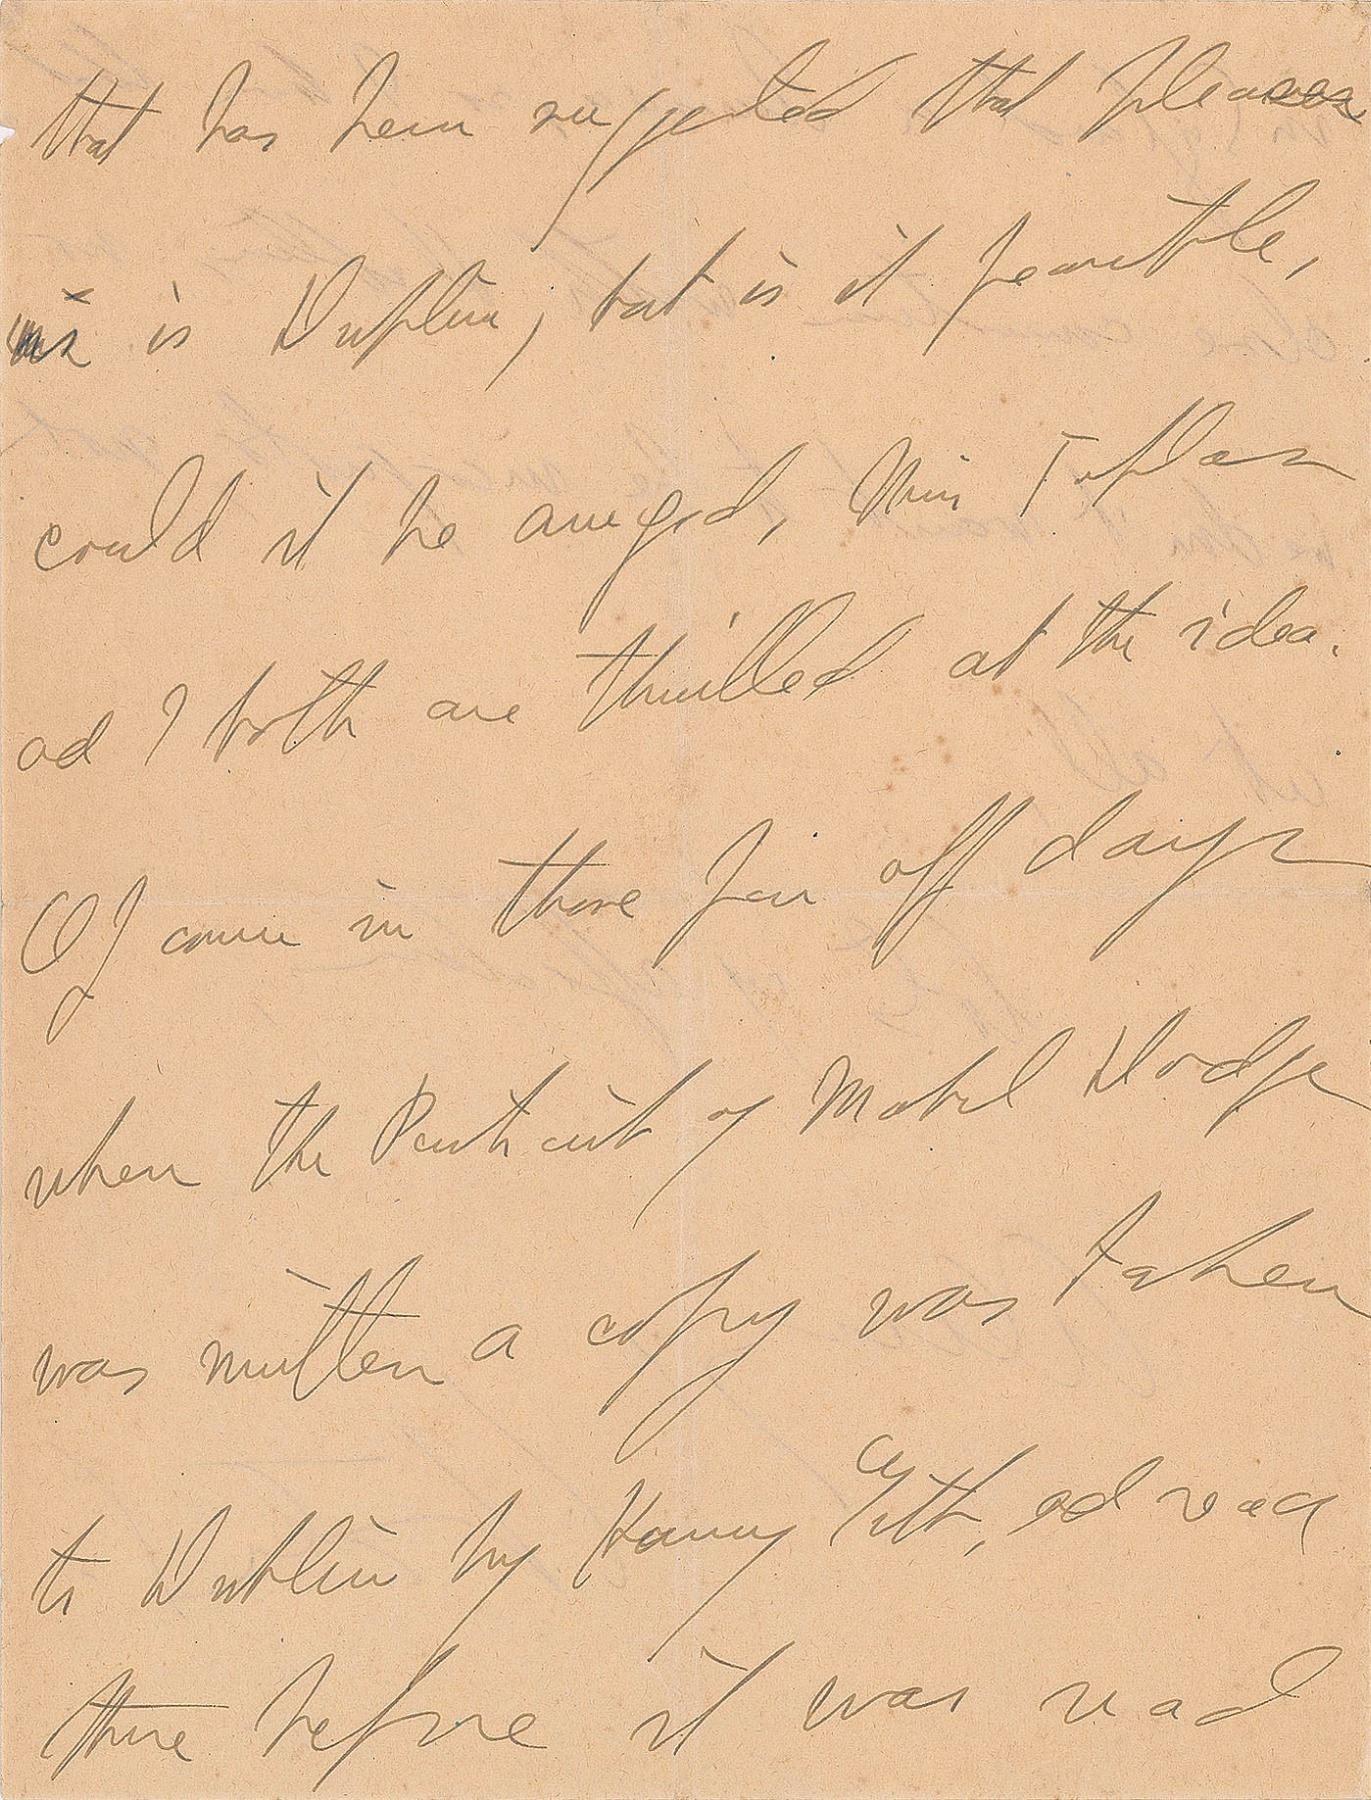 that has been suggested that pleases
me is Dublin, but is it feasible,
could it be arranged, Miss Toklas
and I both are thrilled at the idea.
Of course in those far off days
when the Portrait of Mabel Dodge
was written a copy was taken
to Dublin by Harry Gith, and read
there before it was read